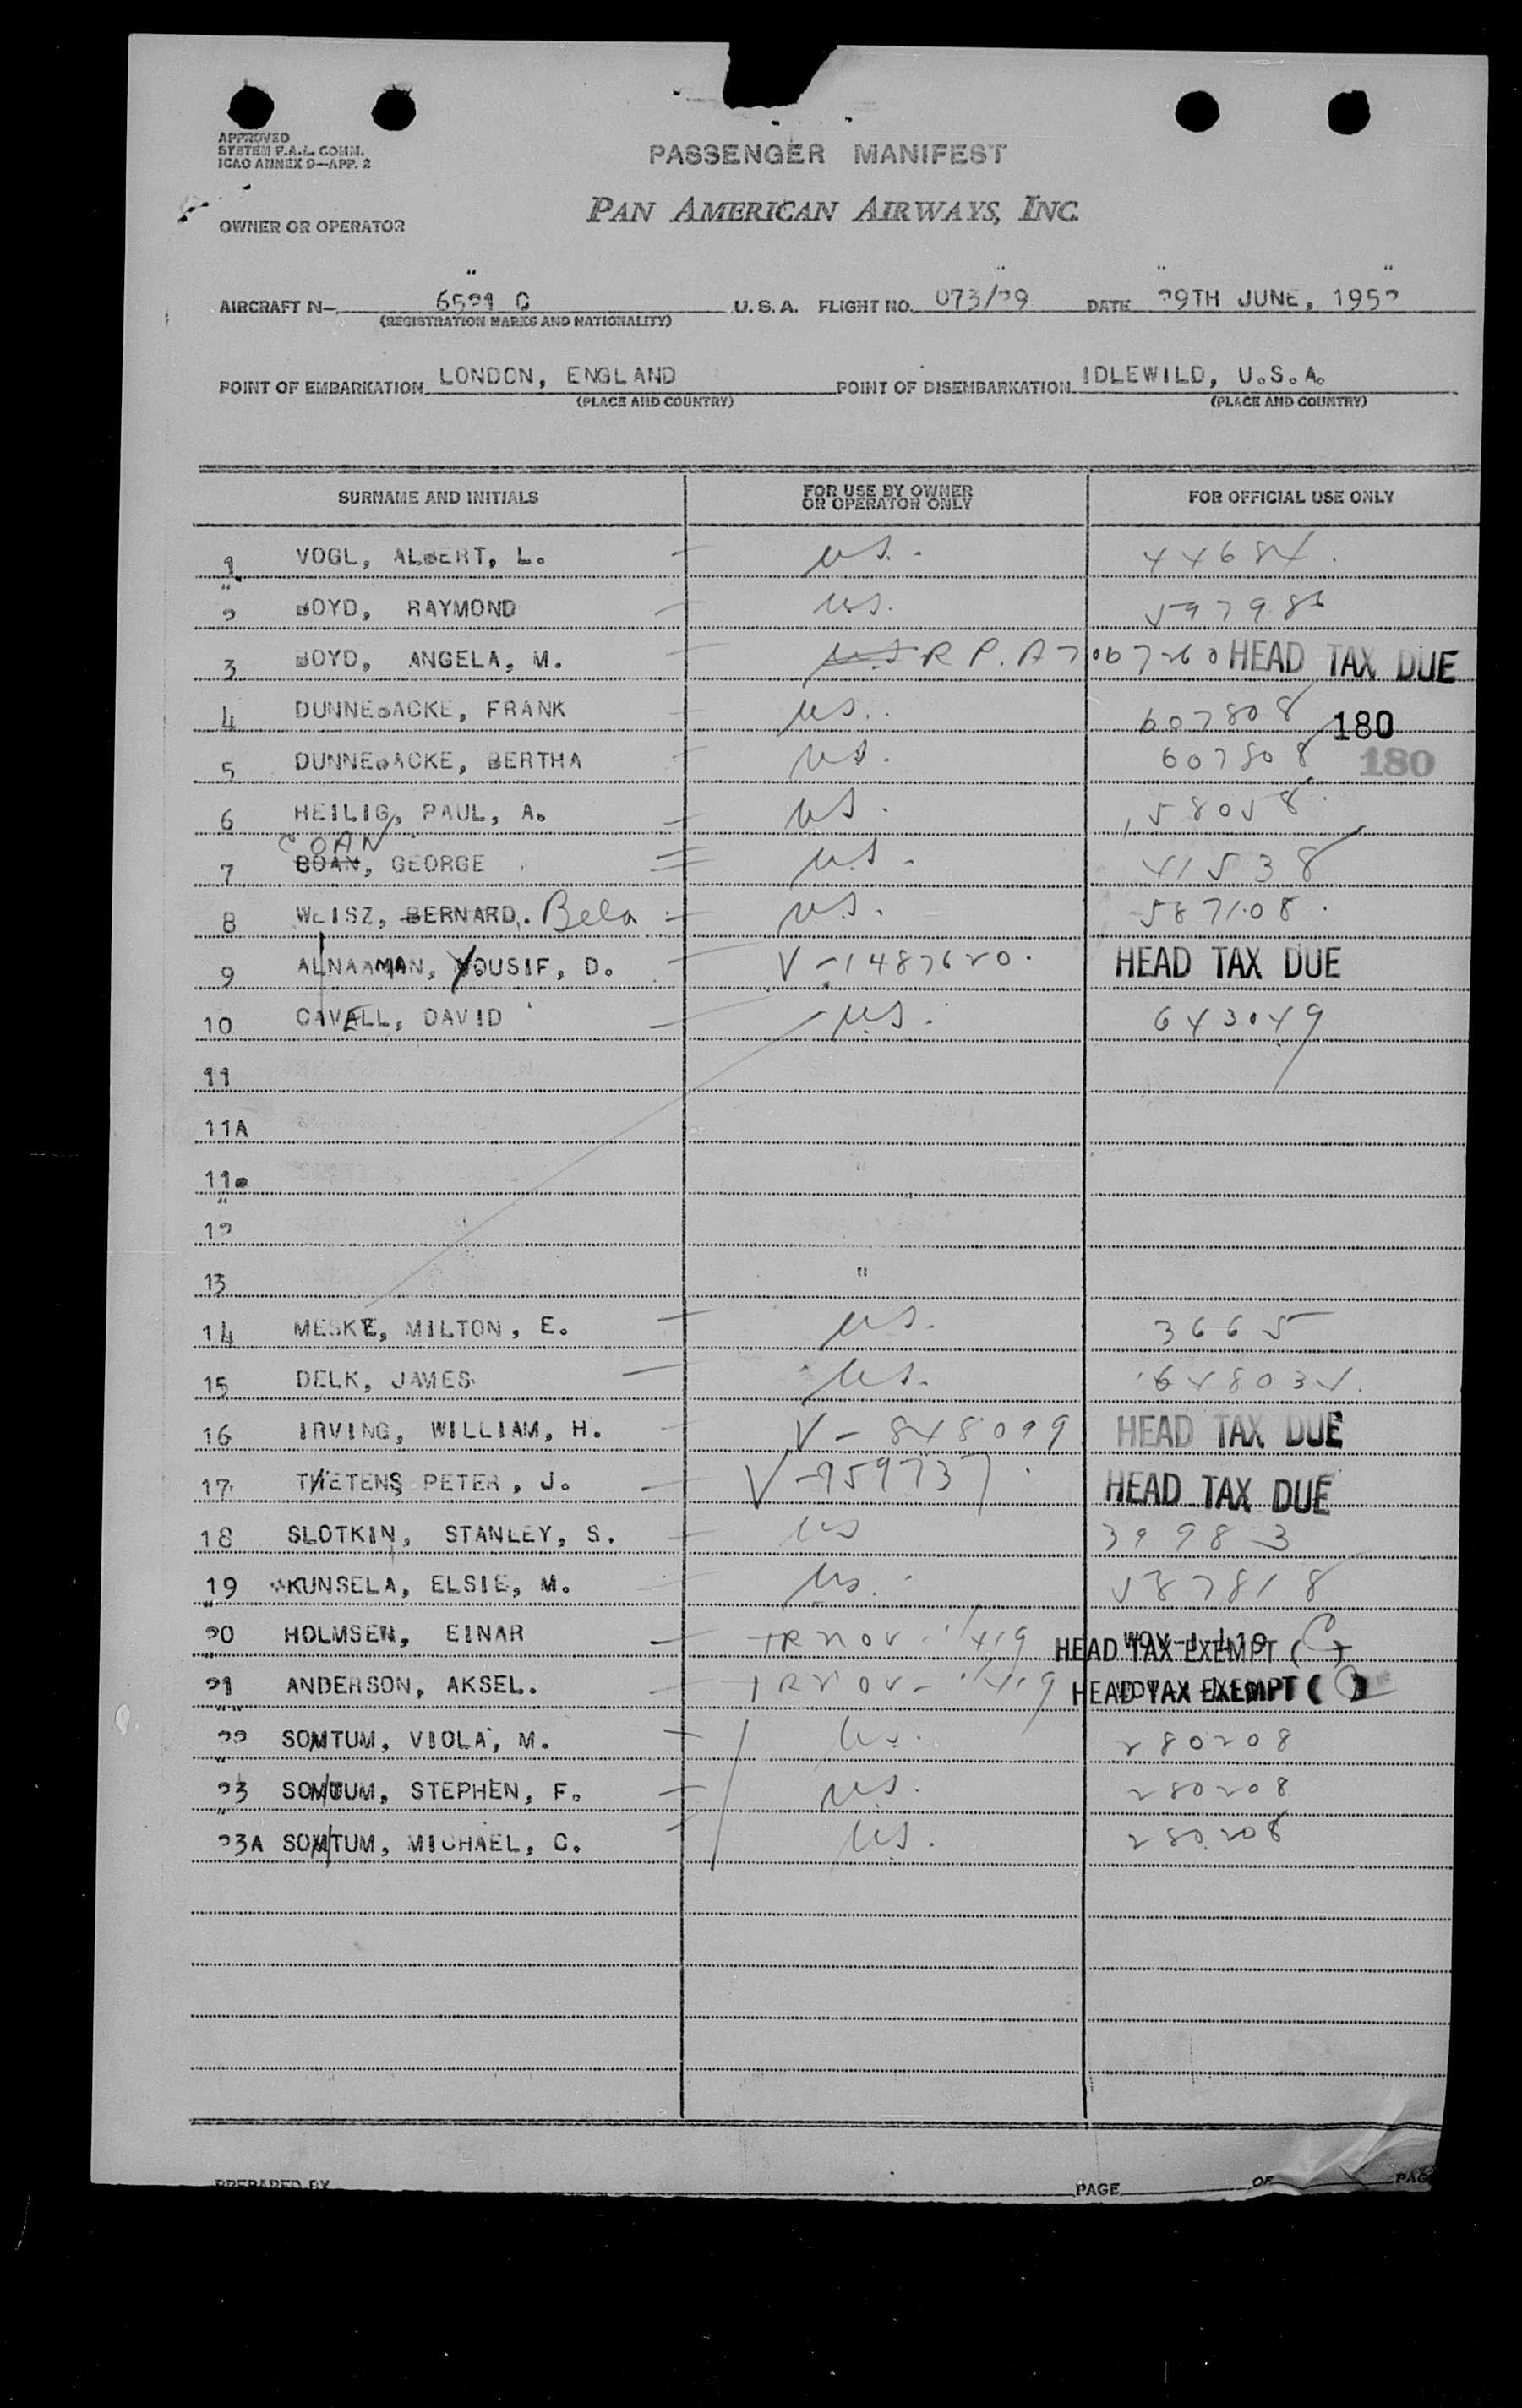 APPROVED
SYSTEM F.A.L. COMM.
ICAO ANNEX 9—APP. 2
PASSENGER MANIFEST
OWNER OR OPERATOR
PAN AMERICAN AIRWAYS, INC.
AIRCRAFT N— 6521 C U.S.A. FLIGHT NO. 073/29 DATE 29TH JUNE, 1952
(REGISTRATION MARKS AND NATIONALITY)
POINT OF EMBARKATION LONDON, ENGLAND POINT OF DISEMBARKATION IDLEWILD, U.S.A.
(PLACE AND COUNTRY) (PLACE AND COUNTRY)
SURNAME AND INITIALS FOR USE BY OWNER OR OPERATOR ONLY FOR OFFICIAL USE ONLY
1 VOGL, ALBERT, L. — US. 44684.
2 BOYD, RAYMOND — US. 597986
3 BOYD, ANGELA, M. — US R P. A7067260 HEAD TAX DUE
4 DUNNEBACKE, FRANK — US. 607808 180
5 DUNNEBACKE, BERTHA — US. 607808 180
6 HEILIG, PAUL, A. — US. 58058
COAN
7 BOAN, GEORGE US. 41538
8 WEISZ, BERNARD. Bela US. 587108
9 ALNAAMAN, YOUSIF, D. — V-1487620. HEAD TAX DUE
10 CAVELL, DAVID — US. 643049
11
11A
11B
12
13 "
14 MESKE, MILTON, E. — US. 3665
15 DELK, JAMES — US. 648034.
16 IRVING, WILLIAM, H. — V-848099 HEAD TAX DUE
17 THETENS PETER, J. — V-959737. HEAD TAX DUE
18 SLOTKIN, STANLEY, S. — US 39983
19 KUNSELA, ELSIE, M. — US. 587818
20 HOLMSEN, EINAR — 419 HEAD TAX EXEMPT ( )
21 ANDERSON, AKSEL. — 419 HEAD TAX EXEMPT ( )
22 SOMTUM, VIOLA, M. — US. 280208
23 SOMTUM, STEPHEN, F. — US. 280208
23A SOMTUM, MICHAEL, C. — US. 280208
PREPARED BY PAGE OF PAG